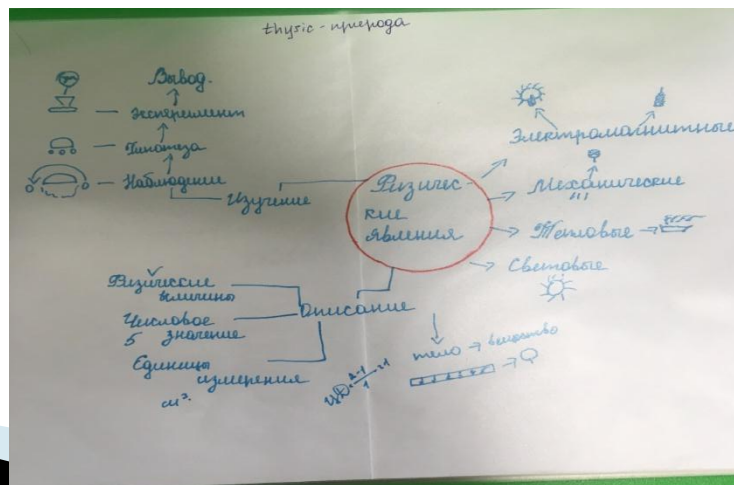 thysic - природа
Вывод.
эксперимент
Гипотеза
Наблюдение
Изучение
Физичес
кие
явления
Электромагнитные
Механические
Тепловые
Световые
Физические
величины
Числовое
5 значение
Единицы
измерения
м³.
Описание
тело → вещество